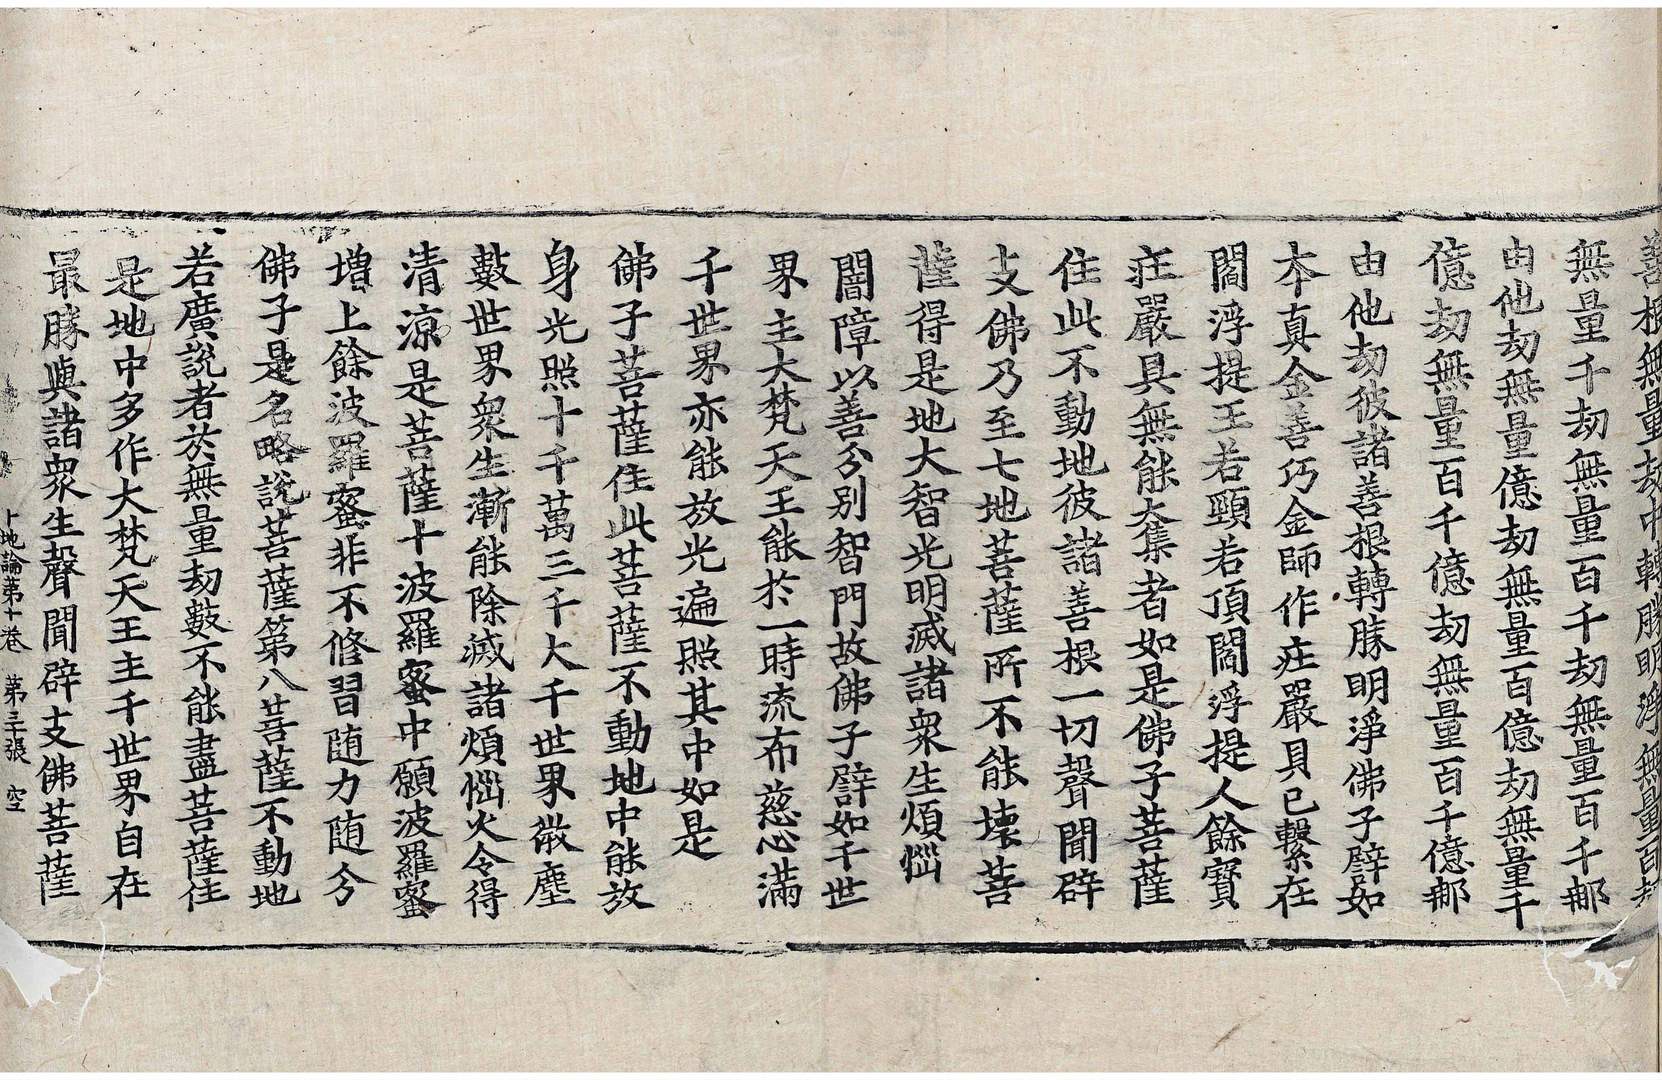 善根無量劫中轉勝明淨無量百劫
無量千劫無量百千劫無量百千那
由他劫無量億劫無量百億劫無量千
億劫無量百千億劫無量百千億那
由他劫彼諸善根轉勝明淨佛子譬如
本真金善巧金師作庄嚴具已繫在
閻浮提王若頸若頂閻浮提人餘寶
庄嚴具無能太集者如是佛子菩薩
住此不動地彼諸善根一切聲聞辟
支佛乃至七地菩薩所不能壞菩
薩得是地大智光明滅諸衆生煩惱
闇障以善分別智門故佛子譬如千世
界主大梵天王能於一時流布慈心滿
千世界亦能放光遍照其中如是
佛子菩薩住此菩薩不動地中能放
身光照十千萬三千大千世界微塵
數世界衆生漸能除滅諸煩惱火令得
清涼是菩薩十波羅蜜中願波羅蜜
增上餘波羅蜜非不修習随力随分
佛子是名略說菩薩第八菩薩不動地
若廣說者於無量劫數不能盡菩薩住
是地中多作大梵天王主千世界自在
最勝與諸衆生聲聞辟支佛菩薩
十地論第十卷 第三十張 空